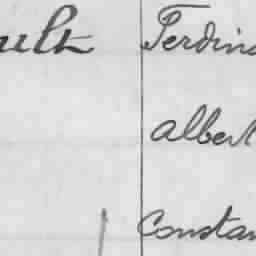 ult Ferdin
Albert
Constan